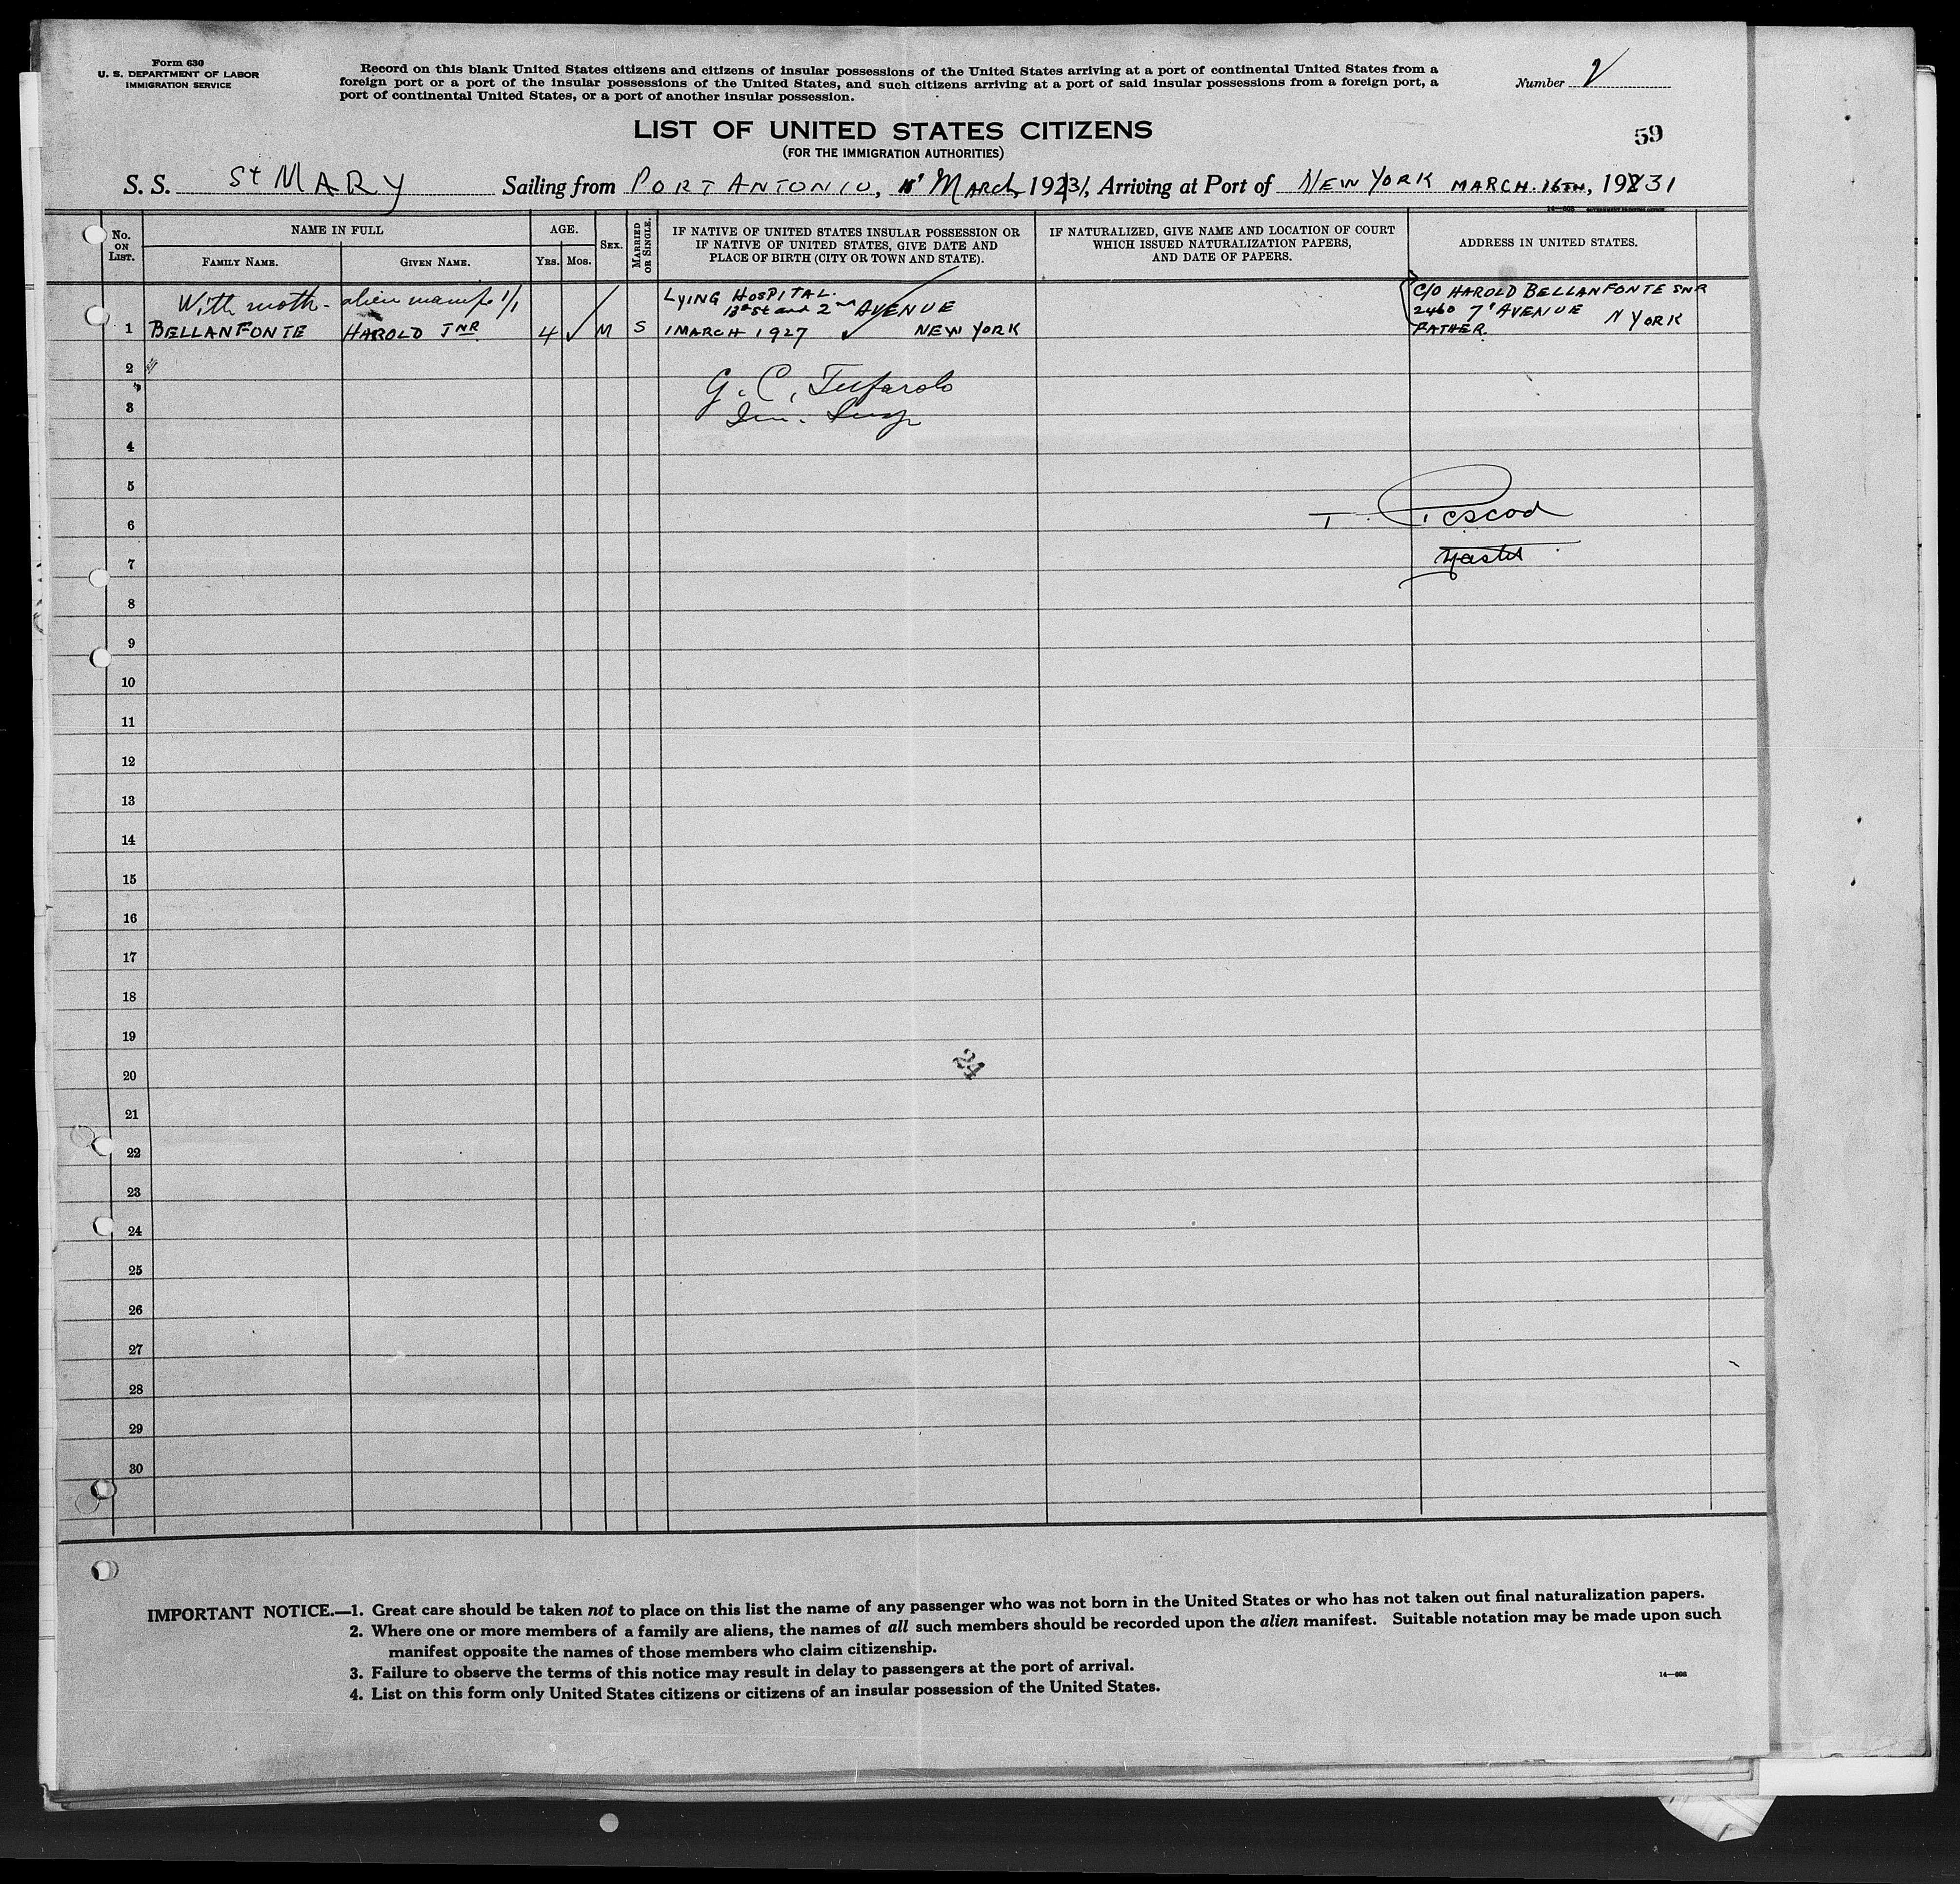 Form 630
U. S. DEPARTMENT OF LABOR
IMMIGRATION SERVICE
Record on this blank United States citizens and citizens of insular possessions of the United States arriving at a port of continental United States from a
foreign port or a port of the insular possessions of the United States, and such citizens arriving at a port of said insular possessions from a foreign port, a
port of continental United States, or a port of another insular possession.
Number
LIST OF UNITED STATES CITIZENS
(FOR THE IMMIGRATION AUTHORITIES)
59
S. S. St MARY Sailing from PORT ANTONIO, March, 192 31, Arriving at Port of NEW YORK MARCH. 16TH, 19 31
No. ON LIST.
NAME IN FULL
FAMILY NAME.
GIVEN NAME.
AGE.
YRS.
MOS.
SEX.
MARRIED OR SINGLE.
IF NATIVE OF UNITED STATES INSULAR POSSESSION OR
IF NATIVE OF UNITED STATES, GIVE DATE AND
PLACE OF BIRTH (CITY OR TOWN AND STATE).
IF NATURALIZED, GIVE NAME AND LOCATION OF COURT
WHICH ISSUED NATURALIZATION PAPERS,
AND DATE OF PAPERS.
ADDRESS IN UNITED STATES.
14—808 GOVERNMENT PRINTING OFFICE
With moth- alien manif 1/1
LYING HOSPITAL.
St and 2nd AVENUE
C/O HAROLD BELLANFONTE SNR
2460 7' AVENUE N YORK
FATHER.
1 BELLANFONTE HAROLD JNR 4 ✓ M S 1 MARCH 1927 ✓ NEW YORK
2
3
G. C. Tufarolo
Im. Insp
4
5
6
T. Pescod
7
Master
8
9
10
11
12
13
14
15
16
17
18
19
20
24
21
22
23
24
25
26
27
28
29
30
IMPORTANT NOTICE.—1. Great care should be taken not to place on this list the name of any passenger who was not born in the United States or who has not taken out final naturalization papers.
2. Where one or more members of a family are aliens, the names of all such members should be recorded upon the alien manifest. Suitable notation may be made upon such
manifest opposite the names of those members who claim citizenship.
3. Failure to observe the terms of this notice may result in delay to passengers at the port of arrival.
4. List on this form only United States citizens or citizens of an insular possession of the United States.
14—808